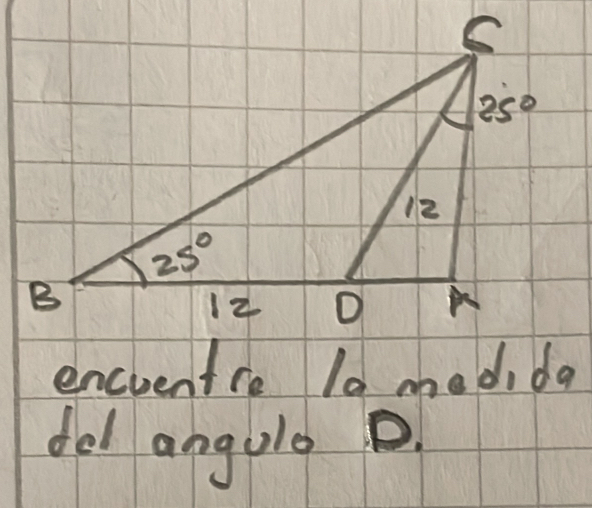 C
25°
12
25°
B 12 D A
encuentre la medida
del angulo D.